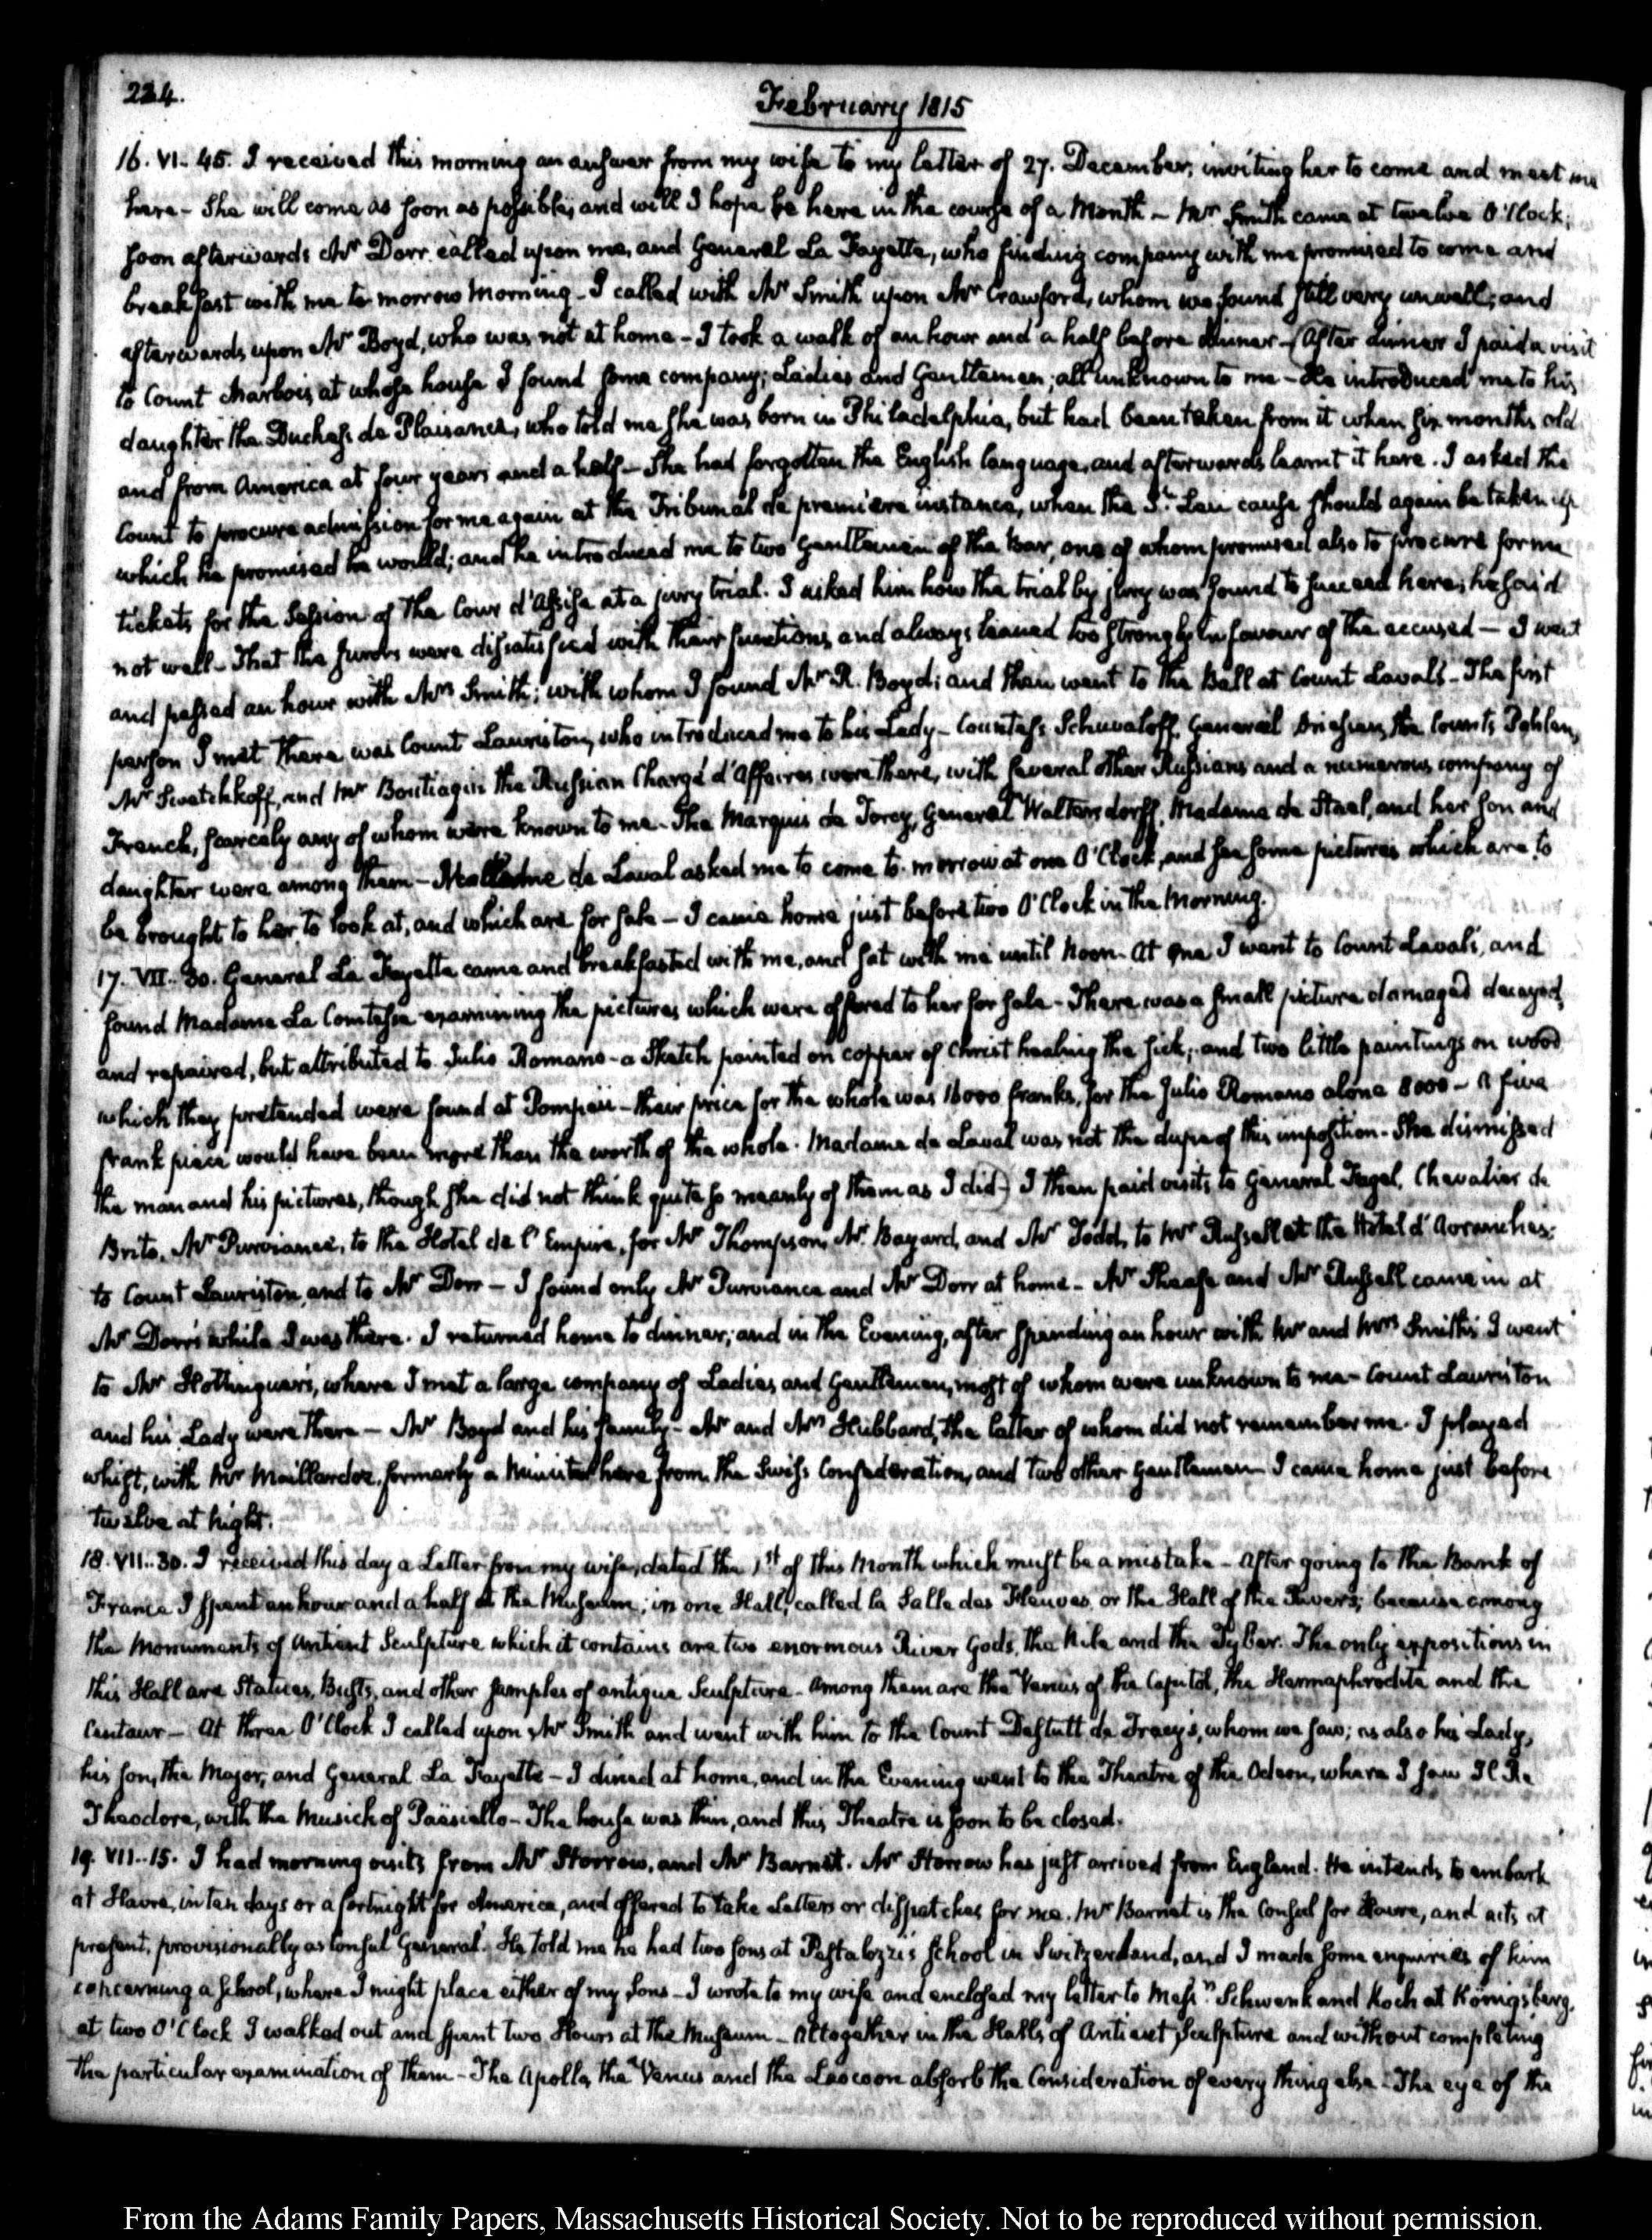 224.
February 1815
16. VI. 45. I received this morning an answer from my wife to my letter of 27. December, inviting her to come and meet me
here - She will come as soon as possible, and will I hope be here in the course of a Month - Mr Smith came at twelve O'Clock;
soon afterwards Mr Dorr called upon me, and General La Fayette, who finding company with me promised to come and
breakfast with me to-morrow morning - I called with Mr Smith upon Mr Crawford, whom we found still very unwell; and
afterwards upon Mr Boyd, who was not at home - I took a walk of an hour and a half before dinner - (After dinner I paid a visit
to Count Marbois, at whose house I found some company; Ladies and Gentlemen, all unknown to me - He introduced me to his
daughter the Duchess de Plaisance, who told me she was born in Philadelphia, but had been taken from it when six months old
and from America at four years and a half - She had forgotten the English language, and afterwards learnt it here. I asked the
Count to procure admission for me again at the Tribunal de premiere instance, when the St. Leu cause should again be taken up
which he promised he would; and he introduced me to two Gentlemen of the bar, one of whom promised also to procure for me
tickets for the Session of the Cour d'Assise at a jury trial. I asked him how the trial by jury was found to succeed here; he said
not well - That the jurors were dissatisfied with their functions, and always leaned too strongly in favour of the accused - I went
and passed an hour with Mrs Smith; with whom I found Mr R. Boyd; and then went to the Ball at Count Laval's - The first
person I met there was Count Lauriston, who introduced me to his Lady - Countess Schuvaloff, General the Counts Pahlen,
Mr Swatchkoff, and Mr Boutiagin the Russian Chargé d'Affaires were there, with several other Russians and a numerous company of
French, scarcely any of whom were known to me - The Marquis de Torcy, General Waltersdorff, Madame de Stael, and her son and
daughter were among them - Madame de Laval asked me to come to-morrow at one O'Clock, and see some pictures which are to
be brought to her to look at, and which are for sale - I came home just before two O'Clock in the Morning.
17. VII. 30. General La Fayette came and breakfasted with me, and sat with me until Noon - At one I went to Count Laval's, and
found Madame La Comtesse examining the pictures which were offered to her for sale - There was a small picture damaged decayed,
and repaired, but attributed to Julio Romano - a Sketch painted on copper of Christ healing the sick; and two little paintings on wood
which they pretended were found at Pompeii - their price for the whole was 16000 franks, for the Julio Romano alone 8000 - A five
frank piece would have been more than the worth of the whole. Madame de Laval was not the dupe of this imposition - She dismissed
the man and his pictures, though she did not think quite so meanly of them as I did) I then paid visits to General Fagel, Chevalier de
Brito, Mr Purviance, to the Hotel de l'Empire, for Mr Thompson, Mr. Bayard, and Mr Todd, to Mr Russell at the Hotel d'Avranches;
to Count Lauriston, and to Mr Dorr - I found only Mr Purviance and Mr Dorr at home - Mr Sheafe and Mr Russell came in at
Mr Dorr's while I was there. I returned home to dinner; and in the Evening, after spending an hour with Mr and Mrs Smith, I went
to Mr Hottinguer's, where I met a large company of Ladies and Gentlemen, most of whom were unknown to me - Count Lauriston
and his Lady were there - Mr Boyd and his family - Mr and Mrs Hubbard, the latter of whom did not remember me. I played
whist, with Mr Maillardoz, formerly a Minister here from the Swiss Confederation, and two other Gentlemen - I came home just before
twelve at night.
18. VII. 30. I received this day a Letter from my wife, dated the 1st of this Month which must be a mistake - After going to the Bank of
France I spent an hour and a half at the Museum; in one Hall, called la Salle des Fleuves, or the Hall of the Rivers; because among
the Monuments of Antient Sculpture which it contains are two enormous River Gods, the Nile and the Tyber. The only expositions in
this Hall are Statues, Busts, and other samples of antique Sculpture - Among them are the Venus of the Capitol, the Hermaphrodite and the
Centaur - At three O'Clock I called upon Mr Smith and went with him to the Count Destutt de Tracy's, whom we saw; as also his Lady,
his son, the Major, and General La Fayette - I dined at home, and in the Evening went to the Theatre of the Odeon, where I saw Il Re
Theodore, with the Musick of Paësiello - The house was thin, and this Theatre is soon to be closed.
19. VII. 15. I had morning visits from Mr Storrow, and Mr Barnet. Mr Storrow has just arrived from England. He intends to embark
at Havre, in ten days or a fortnight for America, and offered to take Letters or dispatches for me. Mr Barnet is the Consul for Havre, and acts at
present, provisionally as Consul General. He told me he had two sons at Pestalozzi's school in Switzerland, and I made some enquiries of him
concerning a school, where I might place either of my Sons - I wrote to my wife and enclosed my letter to Messrs. Schwenk and Koch at Königsberg.
at two O'Clock I walked out and spent two Hours at the Museum - Altogether in the Halls of Antient Sculpture and without completing
the particular examination of them - The Apollo, the Venus and the Laocoon absorb the Consideration of every thing else - The eye of the
From the Adams Family Papers, Massachusetts Historical Society. Not to be reproduced without permission.